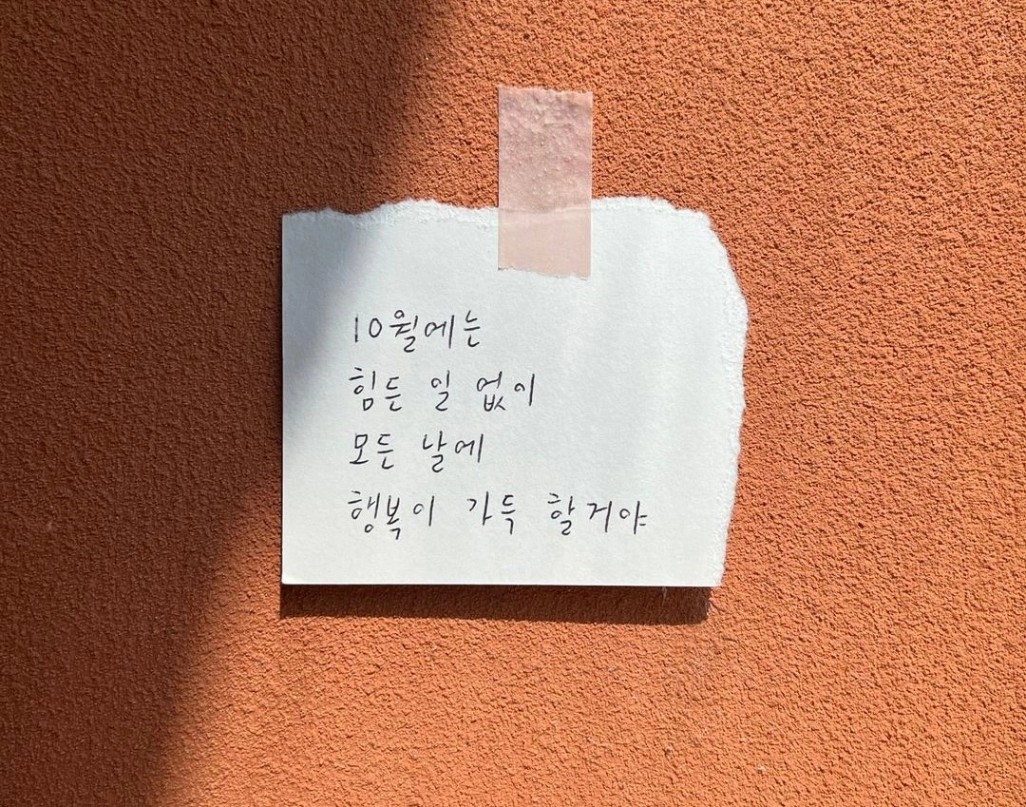 10월에는
힘든 일 없이
모든 날에
행복이 가득 할거야